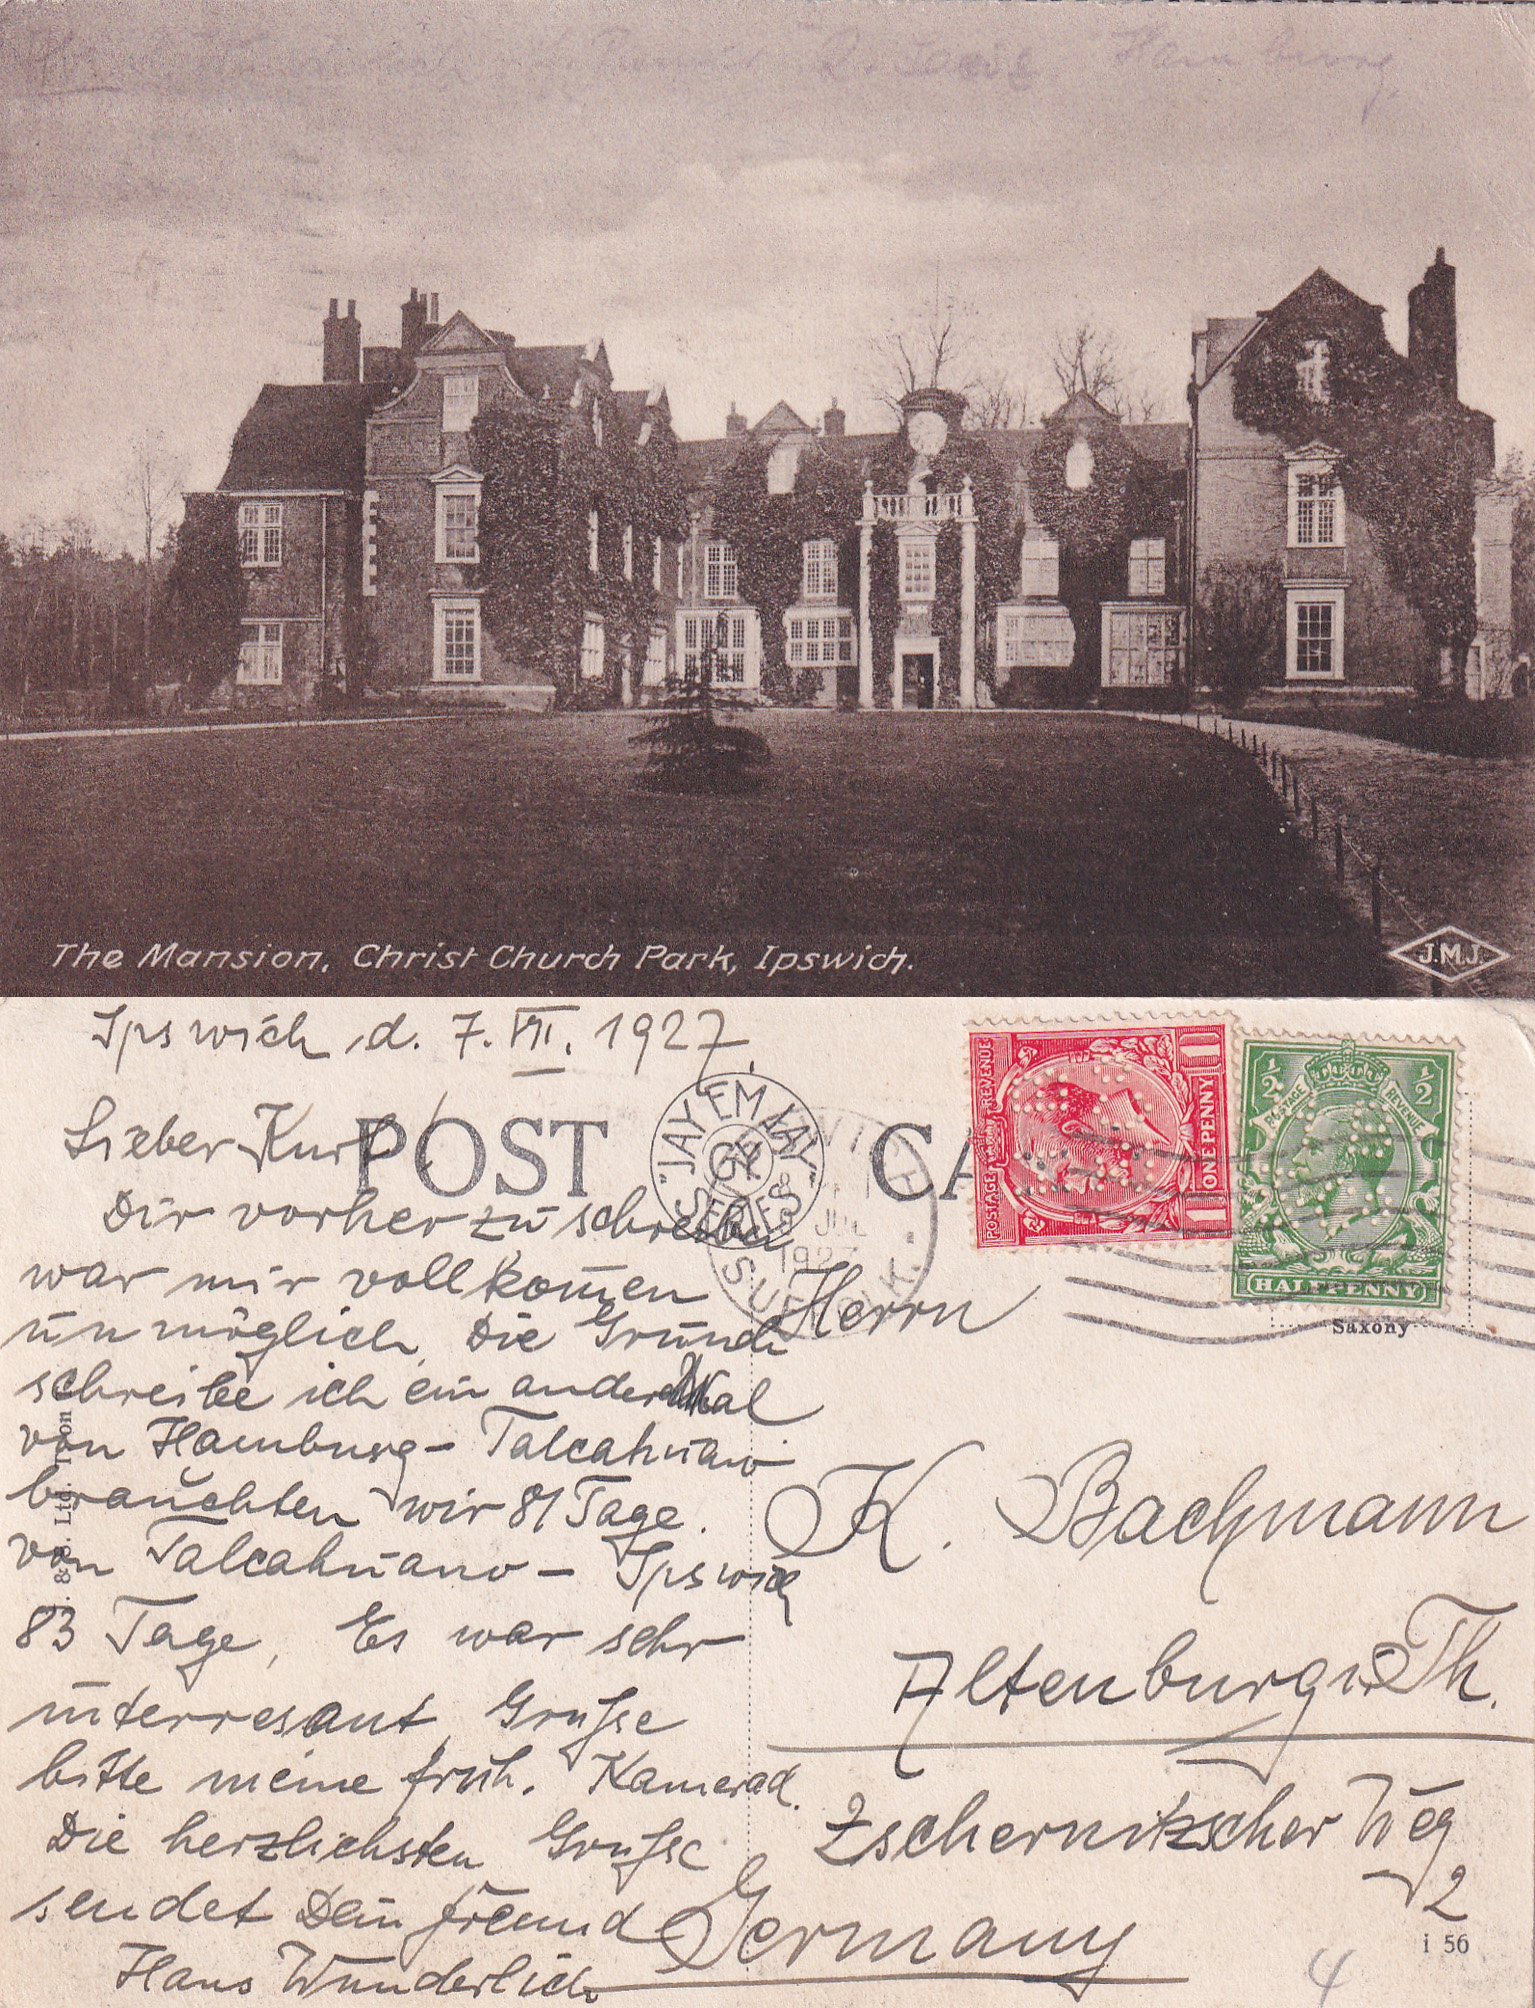 Hamburg
The Mansion, Christ Church Park, Ipswich.
J.M.J.
Ipswich, d. 7. VII. 1927.
POST
"JAY EM JAY"
SERIES
SUFFOLK.
8 JUL
1927
REVENUE
POSTAGE
ONE PENNY
1
1
½
½
POSTAGE
REVENUE
HALFPENNY
Saxony
Lieber Kurt!
Dir vorher zu schreiben
war mir vollkom̅en
unmöglich. Die Gründe
schreibe ich ein andermal
von Hamburg – Talcahuano
brauchten wir 81 Tage.
von Talcahuano – Ipswich
83 Tage, Es war sehr
interresant, Grüsse
bitte meine früh. Kamerad.
Die herzlichsten Grüsse
sendet Dein freund
Hans Wunderlich
Herrn
K. Bachmann
Altenburg i. Th.
Zschernitzscher Weg
2
Germany
4
i 56